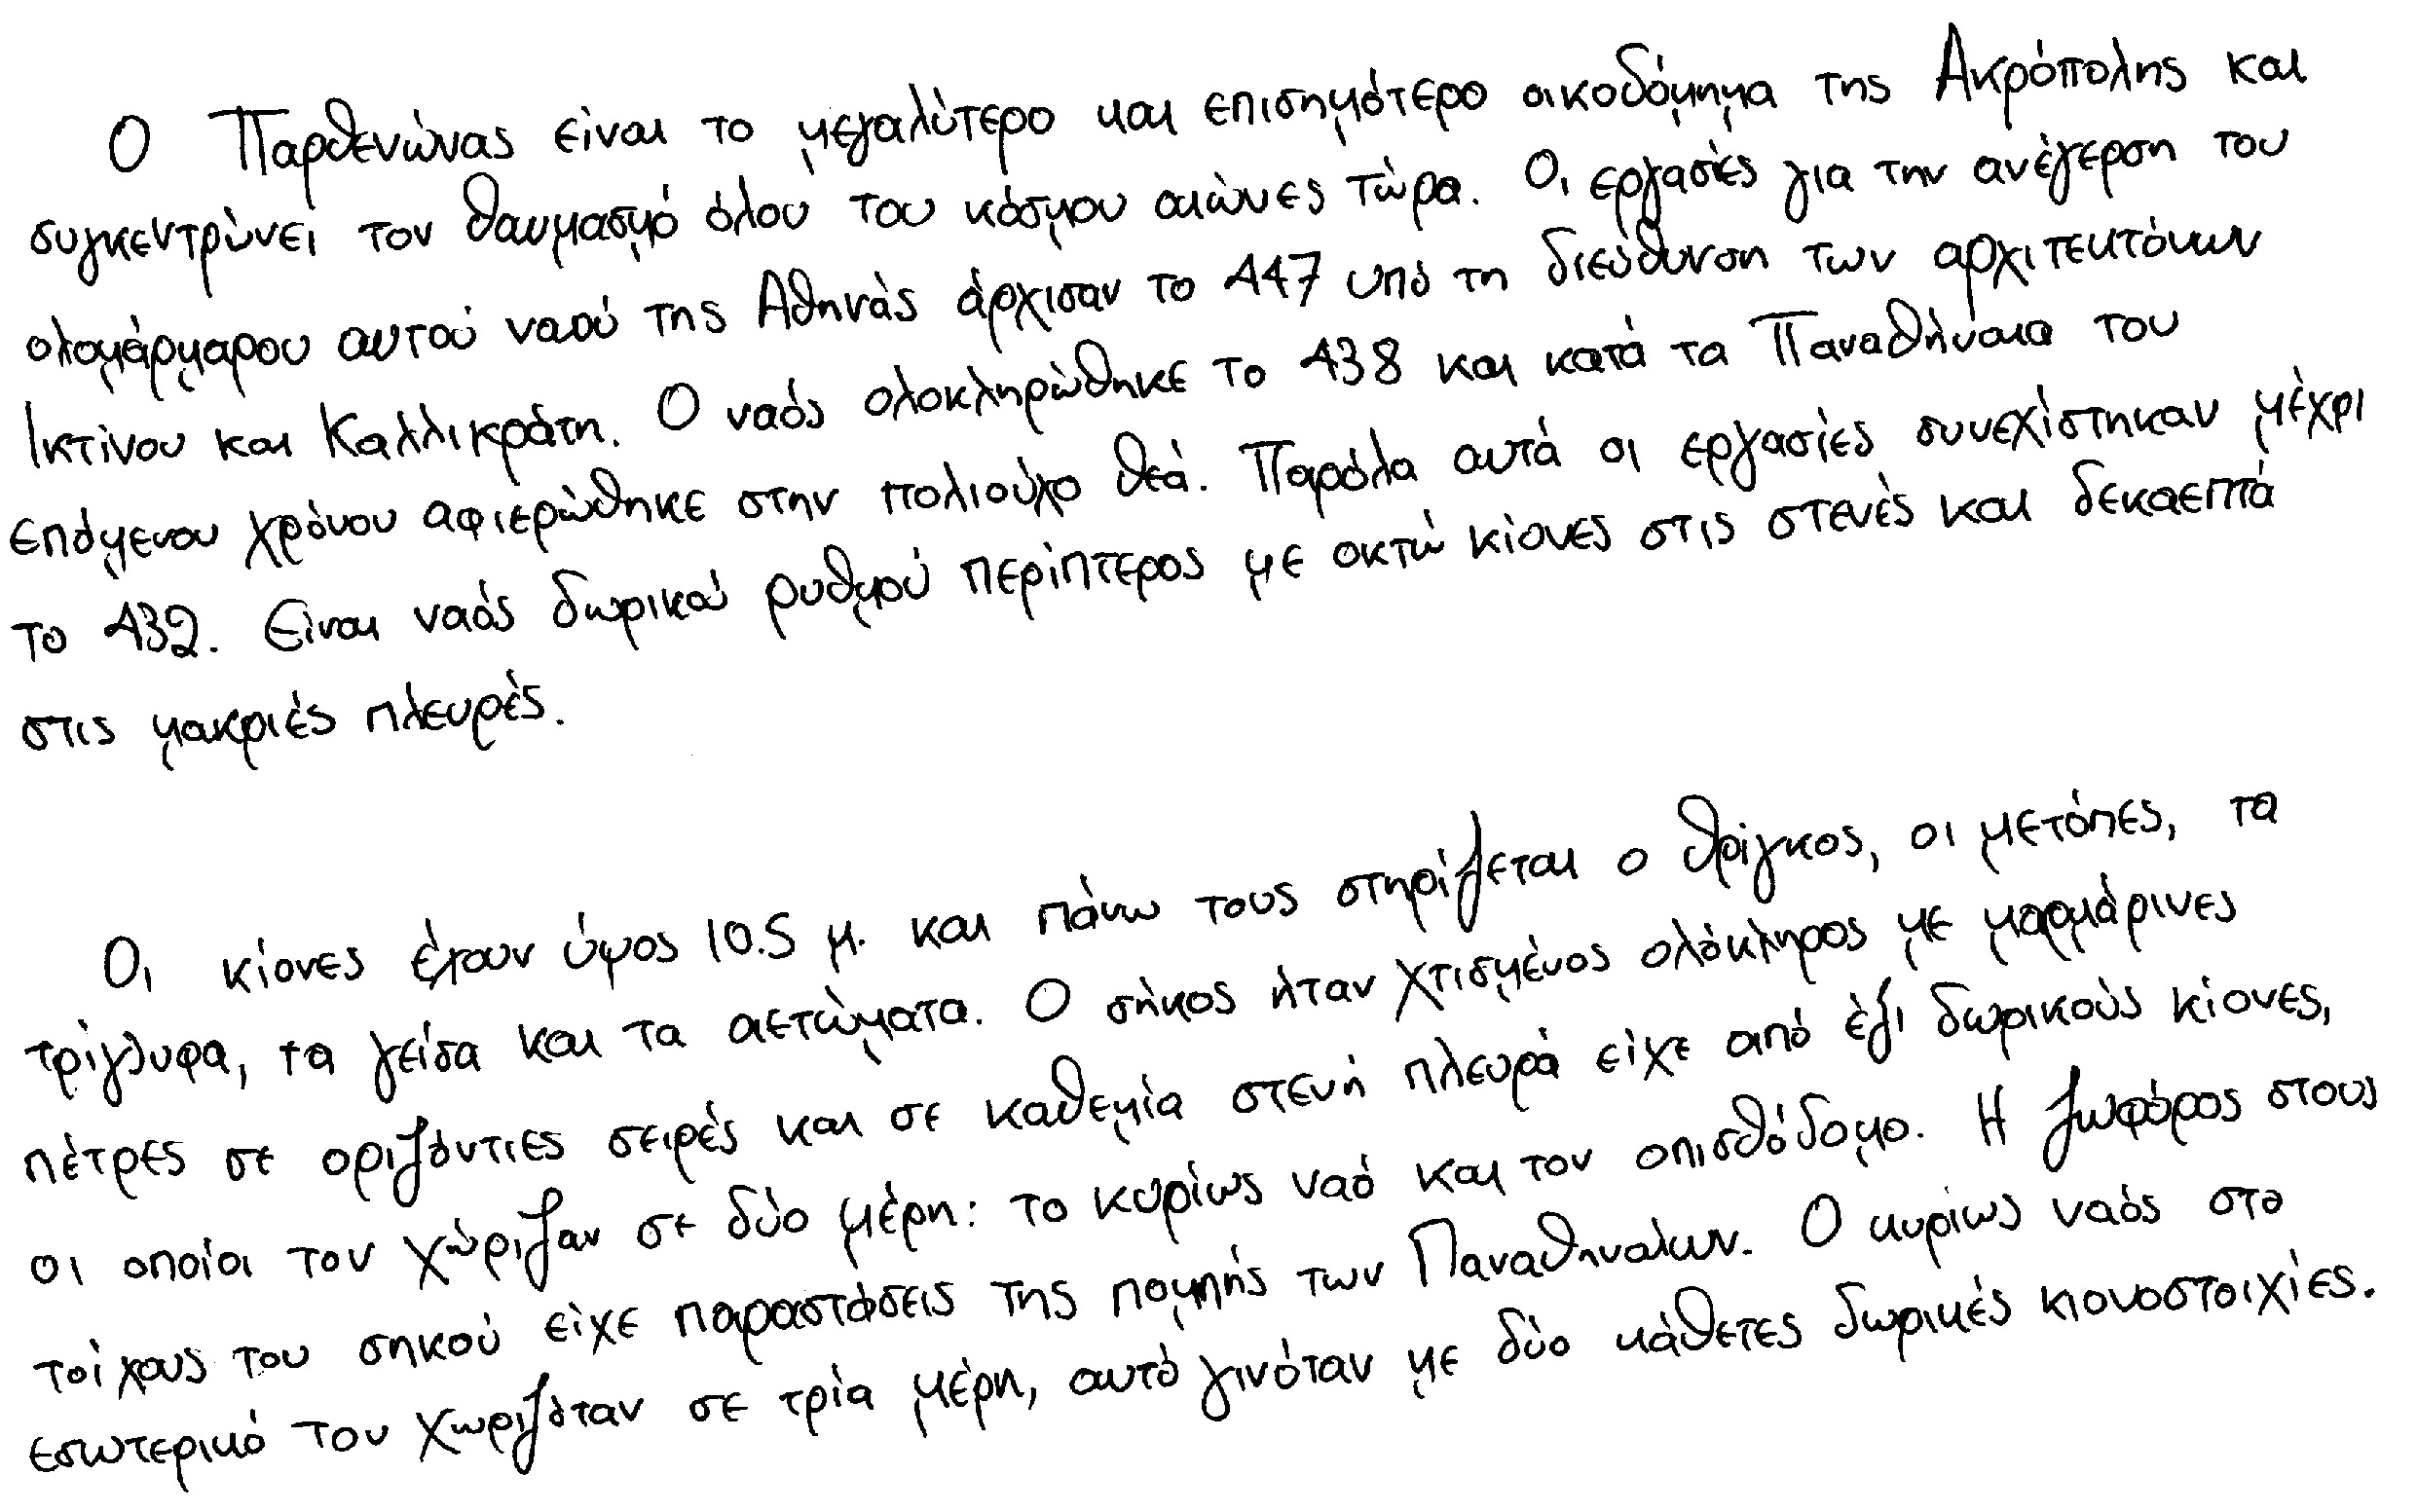 Ο Παρθενώνας είναι το μεγαλύτερο και επισημότερο οικοδόμημα της Ακρόπολης και
συγκεντρώνει τον θαυμασμό όλου του κόσμου αιώνες τώρα. Οι εργασίες για την ανέγερση του
ολομάρμαρου αυτού ναού της Αθηνάς άρχισαν το 447 υπό τη διεύθυνση των αρχιτεκτόνων
Ικτίνου και Καλλικράτη. Ο ναός ολοκληρώθηκε το 438 και κατά τα Παναθήναια του
επόμενου χρόνου αφιερώθηκε στην πολιούχο θεά. Παρόλα αυτά οι εργασίες συνεχίστηκαν μέχρι
το 432. Είναι ναός δωρικού ρυθμού περίπτερος με οκτώ κίονες στις στενές και δεκαεπτά
στις μακριές πλευρές.
Οι κίονες έχουν ύψος 10.5 μ. και πάνω τους στηρίζεται ο θρίγκος, οι μετόπες, τα
τρίγλυφα, τα γείσα και τα αετώματα. Ο σήκος ήταν χτισμένος ολόκληρος με μαρμάρινες
πέτρες σε οριζόντιες σειρές και σε καθεμία στενή πλευρά είχε από έξι δωρικούς κίονες,
οι οποίοι τον χώριζαν σε δύο μέρη: το κυρίως ναό και τον οπισθόδομο. Η ζωφόρος στους
τοίχους του σηκού είχε παραστάσεις της πομπής των Παναθηναίων. Ο κυρίως ναός στο
εσωτερικό του χωριζόταν σε τρία μέρη, αυτό γινόταν με δύο κάθετες δωρικές κιονοστοιχίες.